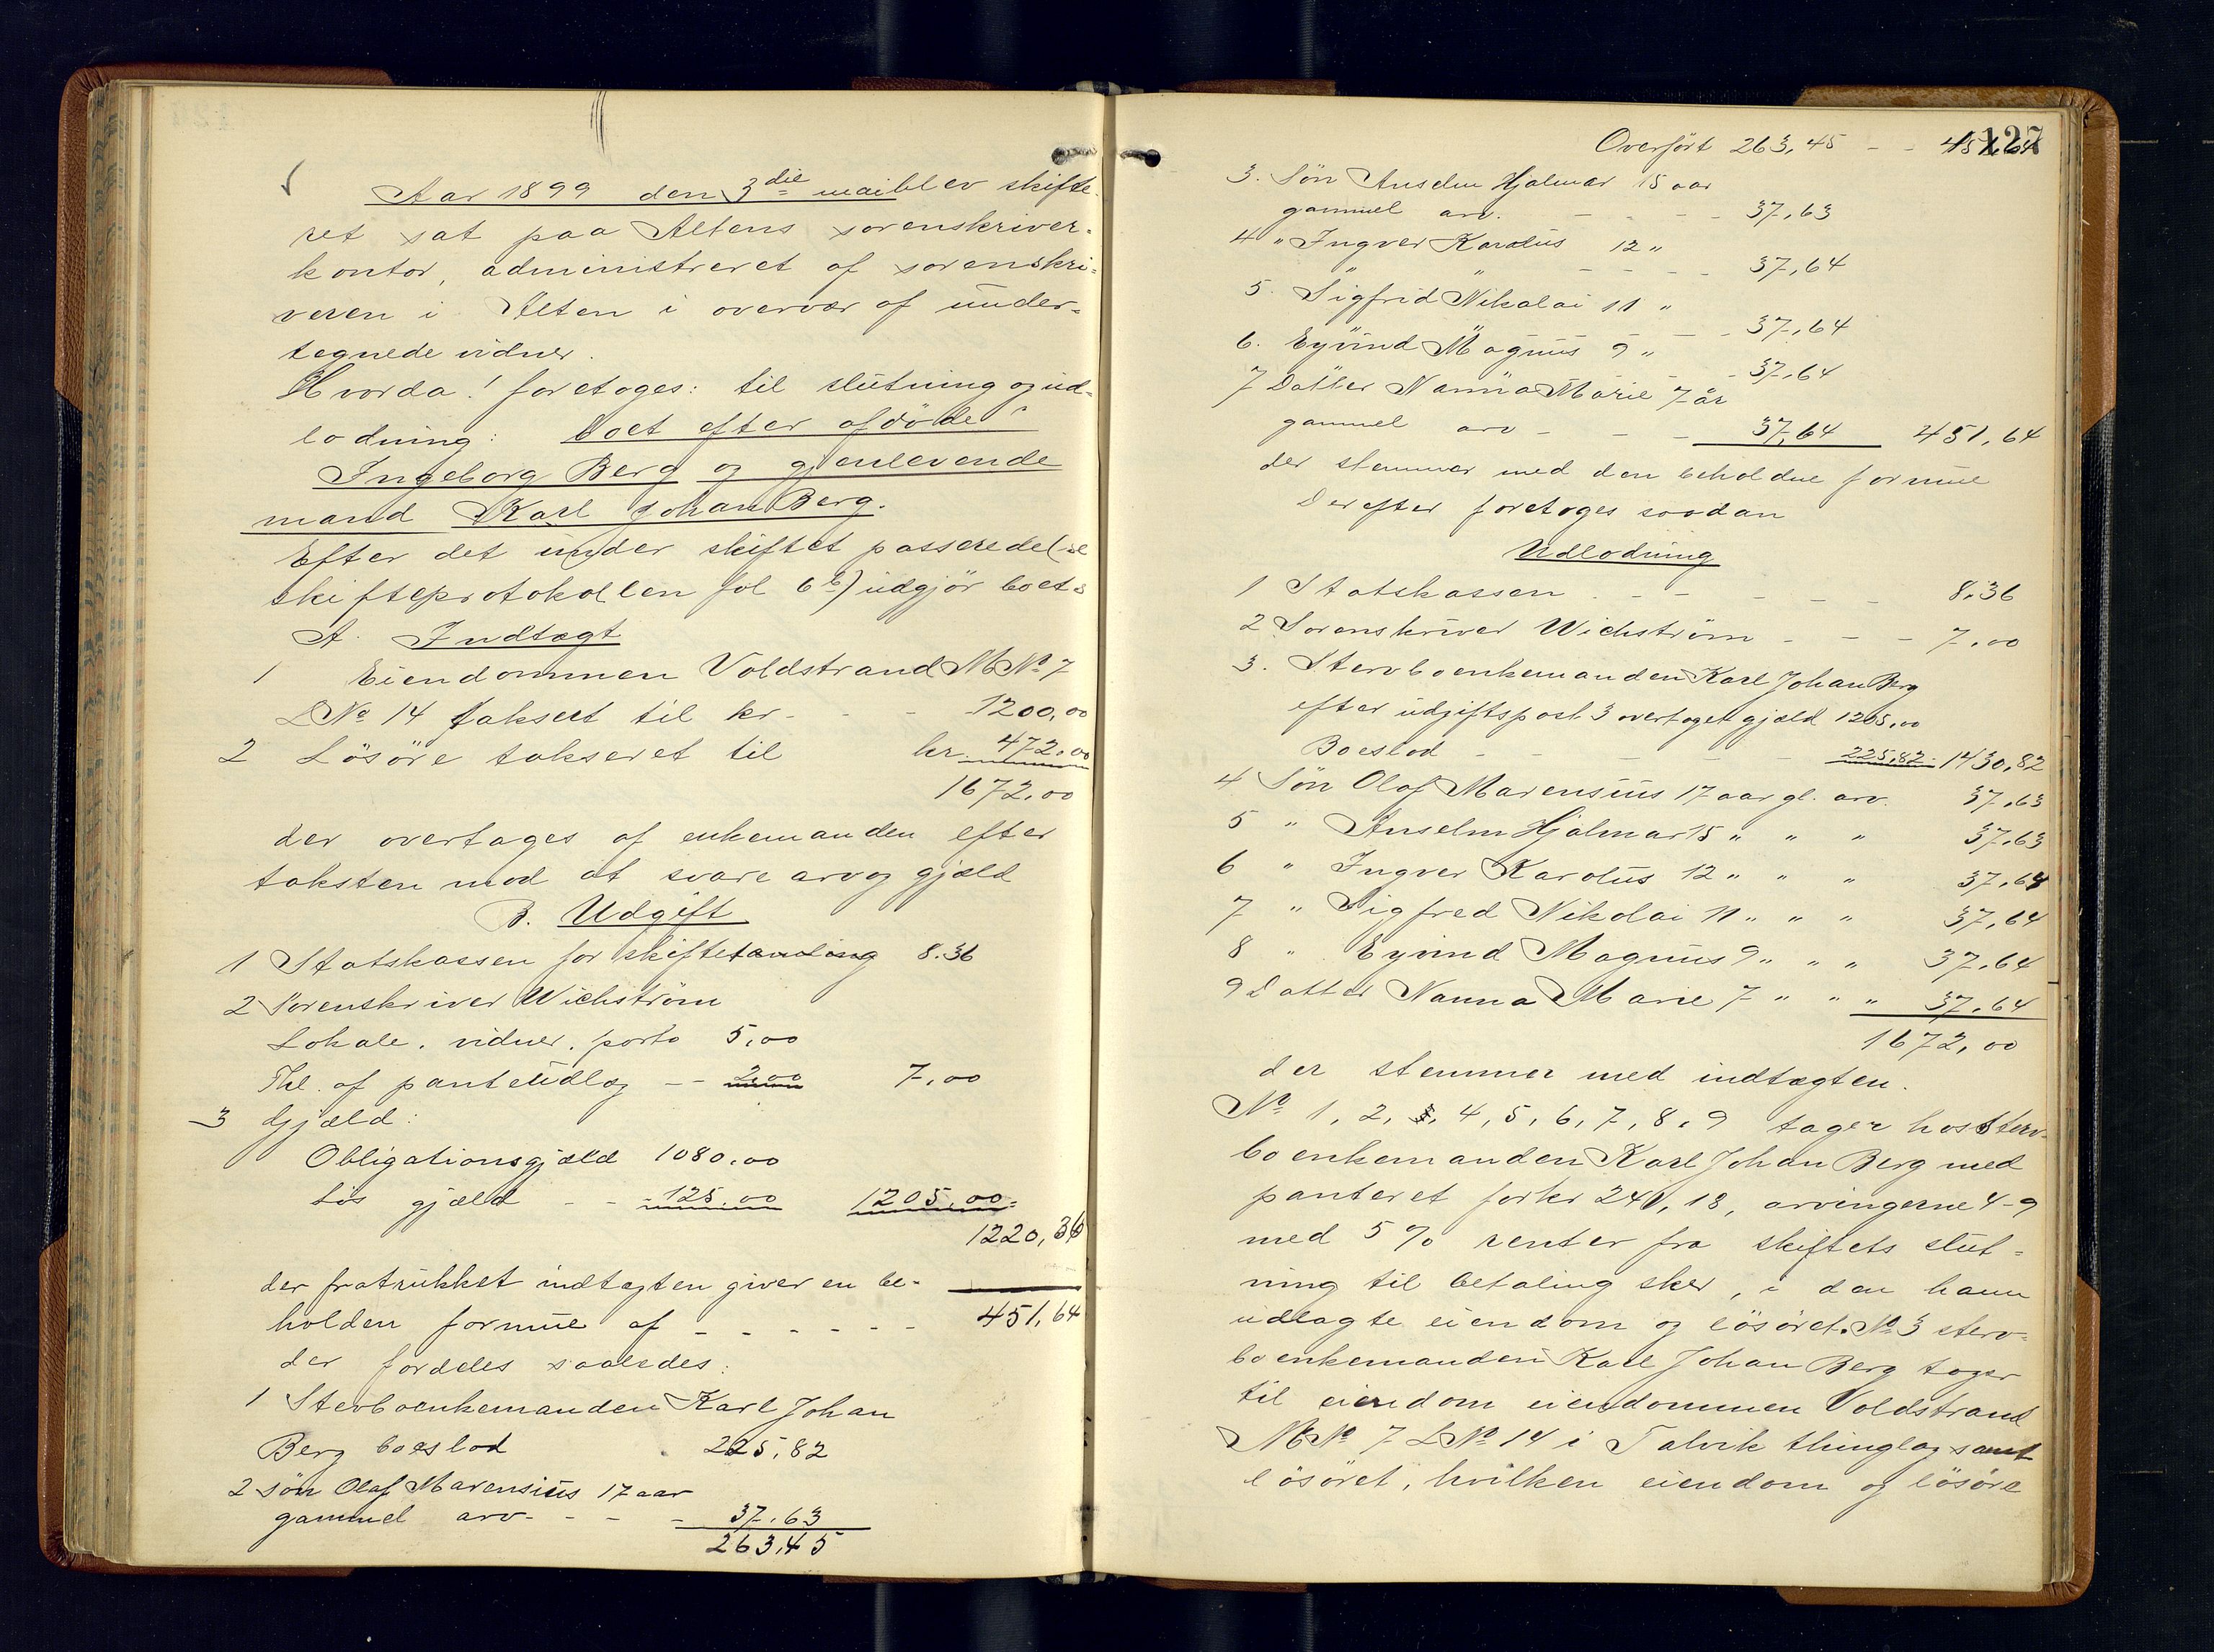 Aar 1899 den 3die mai blev skifte-
ret sat paa Altens sorenskriver-
kontor, administreret af sorenskri-
veren i Alten i overvær af under-
tegnede vidner.
Hvorda! foretoges: til slutning og ud-
lodning: boet efter afdøde
Ingeborg Berg og gjenlevende
mand Karl Johan Berg.
Efter det under skiftet passerede (se
skifteprotokollen fol 6b) udgjør boets
A. Indtægt
1 Eiendommen Voldstrand MNo 7
LNo 14 takseret til kr - - 1200,00
2 Løsøre takseret til kr 472.00
1672,00
der overtages af enkemanden efter
taksten mod at svare arv og gjæld
B. Udgift
1 Statskassen for skiftebehandling 8.36
2 Sorenskriver Wichstrøm
Lokale, vidner, porto 5,00
Thl. af panteudlæg -- 2,00 7,00
3 Gjæld:
Obligationsgjæld 1080,00
Løs gjæld - - 125,00 1205,00
1220,36
der fratrukket indtægten giver en be-
holden formue af - - - - - - 451,64
der fordeles saaledes:
1 Stervboenkemanden Karl Johan
Berg boeslod 225,82
2 søn Olaf Marensius 17 aar
gammel arv - - - - 37,63
263,45
127
Overført 263,45 - - 451,64
3. Søn Anselm Hjalmar 15 aar
gammel arv. - - - - 37,63
4 " Ingver Karolus 12 "
" " - - - - 37,64
5. Sigfrid Nikolai 11 "
" " - - - 37,64
6. Eyvind Magnus 9 "
- - 37,64
7 Datter Nanna Marie 7 år
gammel arv - - - 37,64 451,64
der stemmer med den beholdne formue
Derefter foretoges saadan
Udlodning
1 Statskassen - - - - - - 8,36
2 Sorenskriver Wichstrøm - - - 7,00
3. Stervboenkemanden Karl Johan Berg
efter udgiftspost 3 overtaget gjæld 1205,00
Boeslod - - - - 225,82 1430,82
4 Søn Olaf Marensius 17 aar gl. arv. 37,63
5 " Anselm Hjalmar 15 " " " 37,63
6 " Ingver Karolus 12 " " " 37,64
7 " Sigfred Nikolai 11 " " " 37,64
8 " Eyvind Magnus 9 " " " 37,64
9 Datter Nanna Marie 7 " " " 37,64
1672,00
der stemmer med indtægten.
No 1, 2, 3, 4, 5, 6, 7, 8, 9 tager hos Sterv-
boenkemanden Karl Johan Berg med
panteret for kr 241,18, arvingerne 4-9
med 5 % renter fra skiftets slut-
ning til betaling sker, i den ham
udlagte eiendom og løsøret. No 3 sterv-
boenkemanden Karl Johan Berg tager
til eiendom eiendommen Voldstrand
MNo 7 LNo 14 i Talvik thinglag samt
løsøret, hvilken eiendom og løsøre